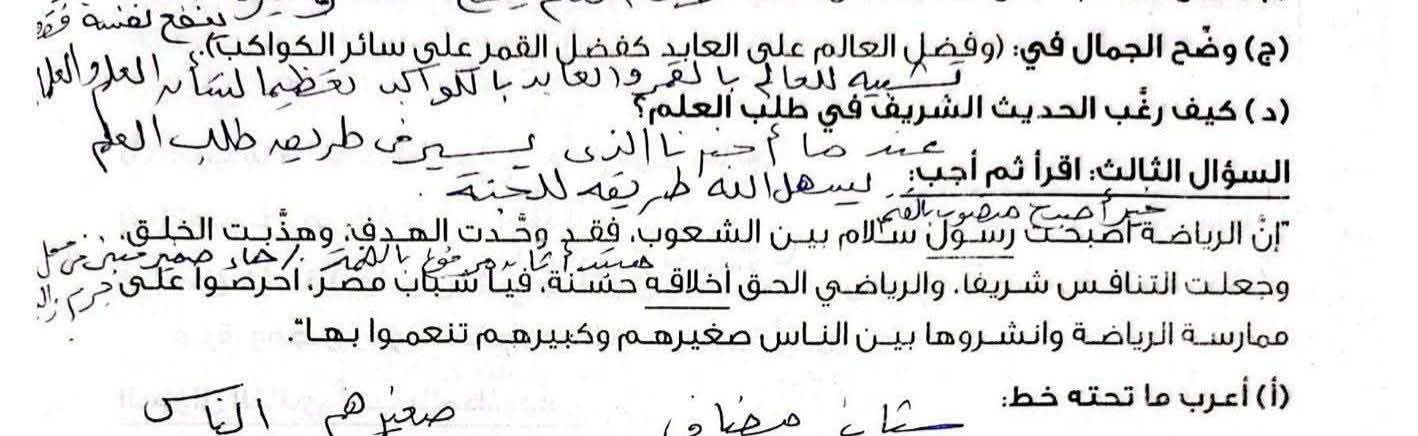 ينفع لنفسه فقط
(ج) وضّح الجمال في: (وفضل العالم على العابد كفضل القمر على سائر الكواكب).
تشبيه للعالم بالقمر والعابد بالكواكب تعظيما لشأن العلم والعلماء
(د) كيف رغَّب الحديث الشريف في طلب العلم؟
عندما أخبرنا الذى يسير فى طريق طلب العلم
السؤال الثالث: اقرأ ثم أجب:
ييسهل الله طريقه للجنة.
خبر أصبح منصوب بالفتحة
"إنَّ الرياضة أصبحت رسول سلام بين الشعوب، فقد وحَّدت الهدف، وهذَّبت الخلق،
مبتدأ ثان مرفوع بالضمة / هاء ضمير مبنى فى محل جر
وجعلت التنافس شريفا، والرياضي الحق أخلاقه حسنة، فيا شباب مصر، احرصوا على
ممارسة الرياضة وانشروها بين الناس صغيرهم وكبيرهم تنعموا بها".
(أ) أعرب ما تحته خط:
مضاف صغيرهم الناس